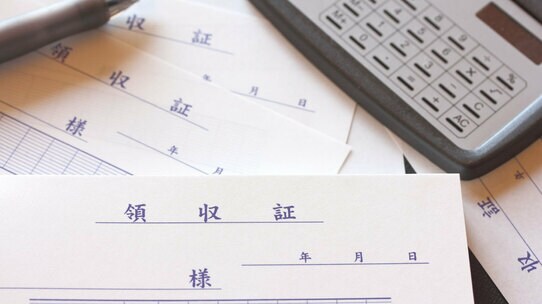 領収証
年 月 日
領収証
年 月
様
領収証
年 月 日
様
収証
AC